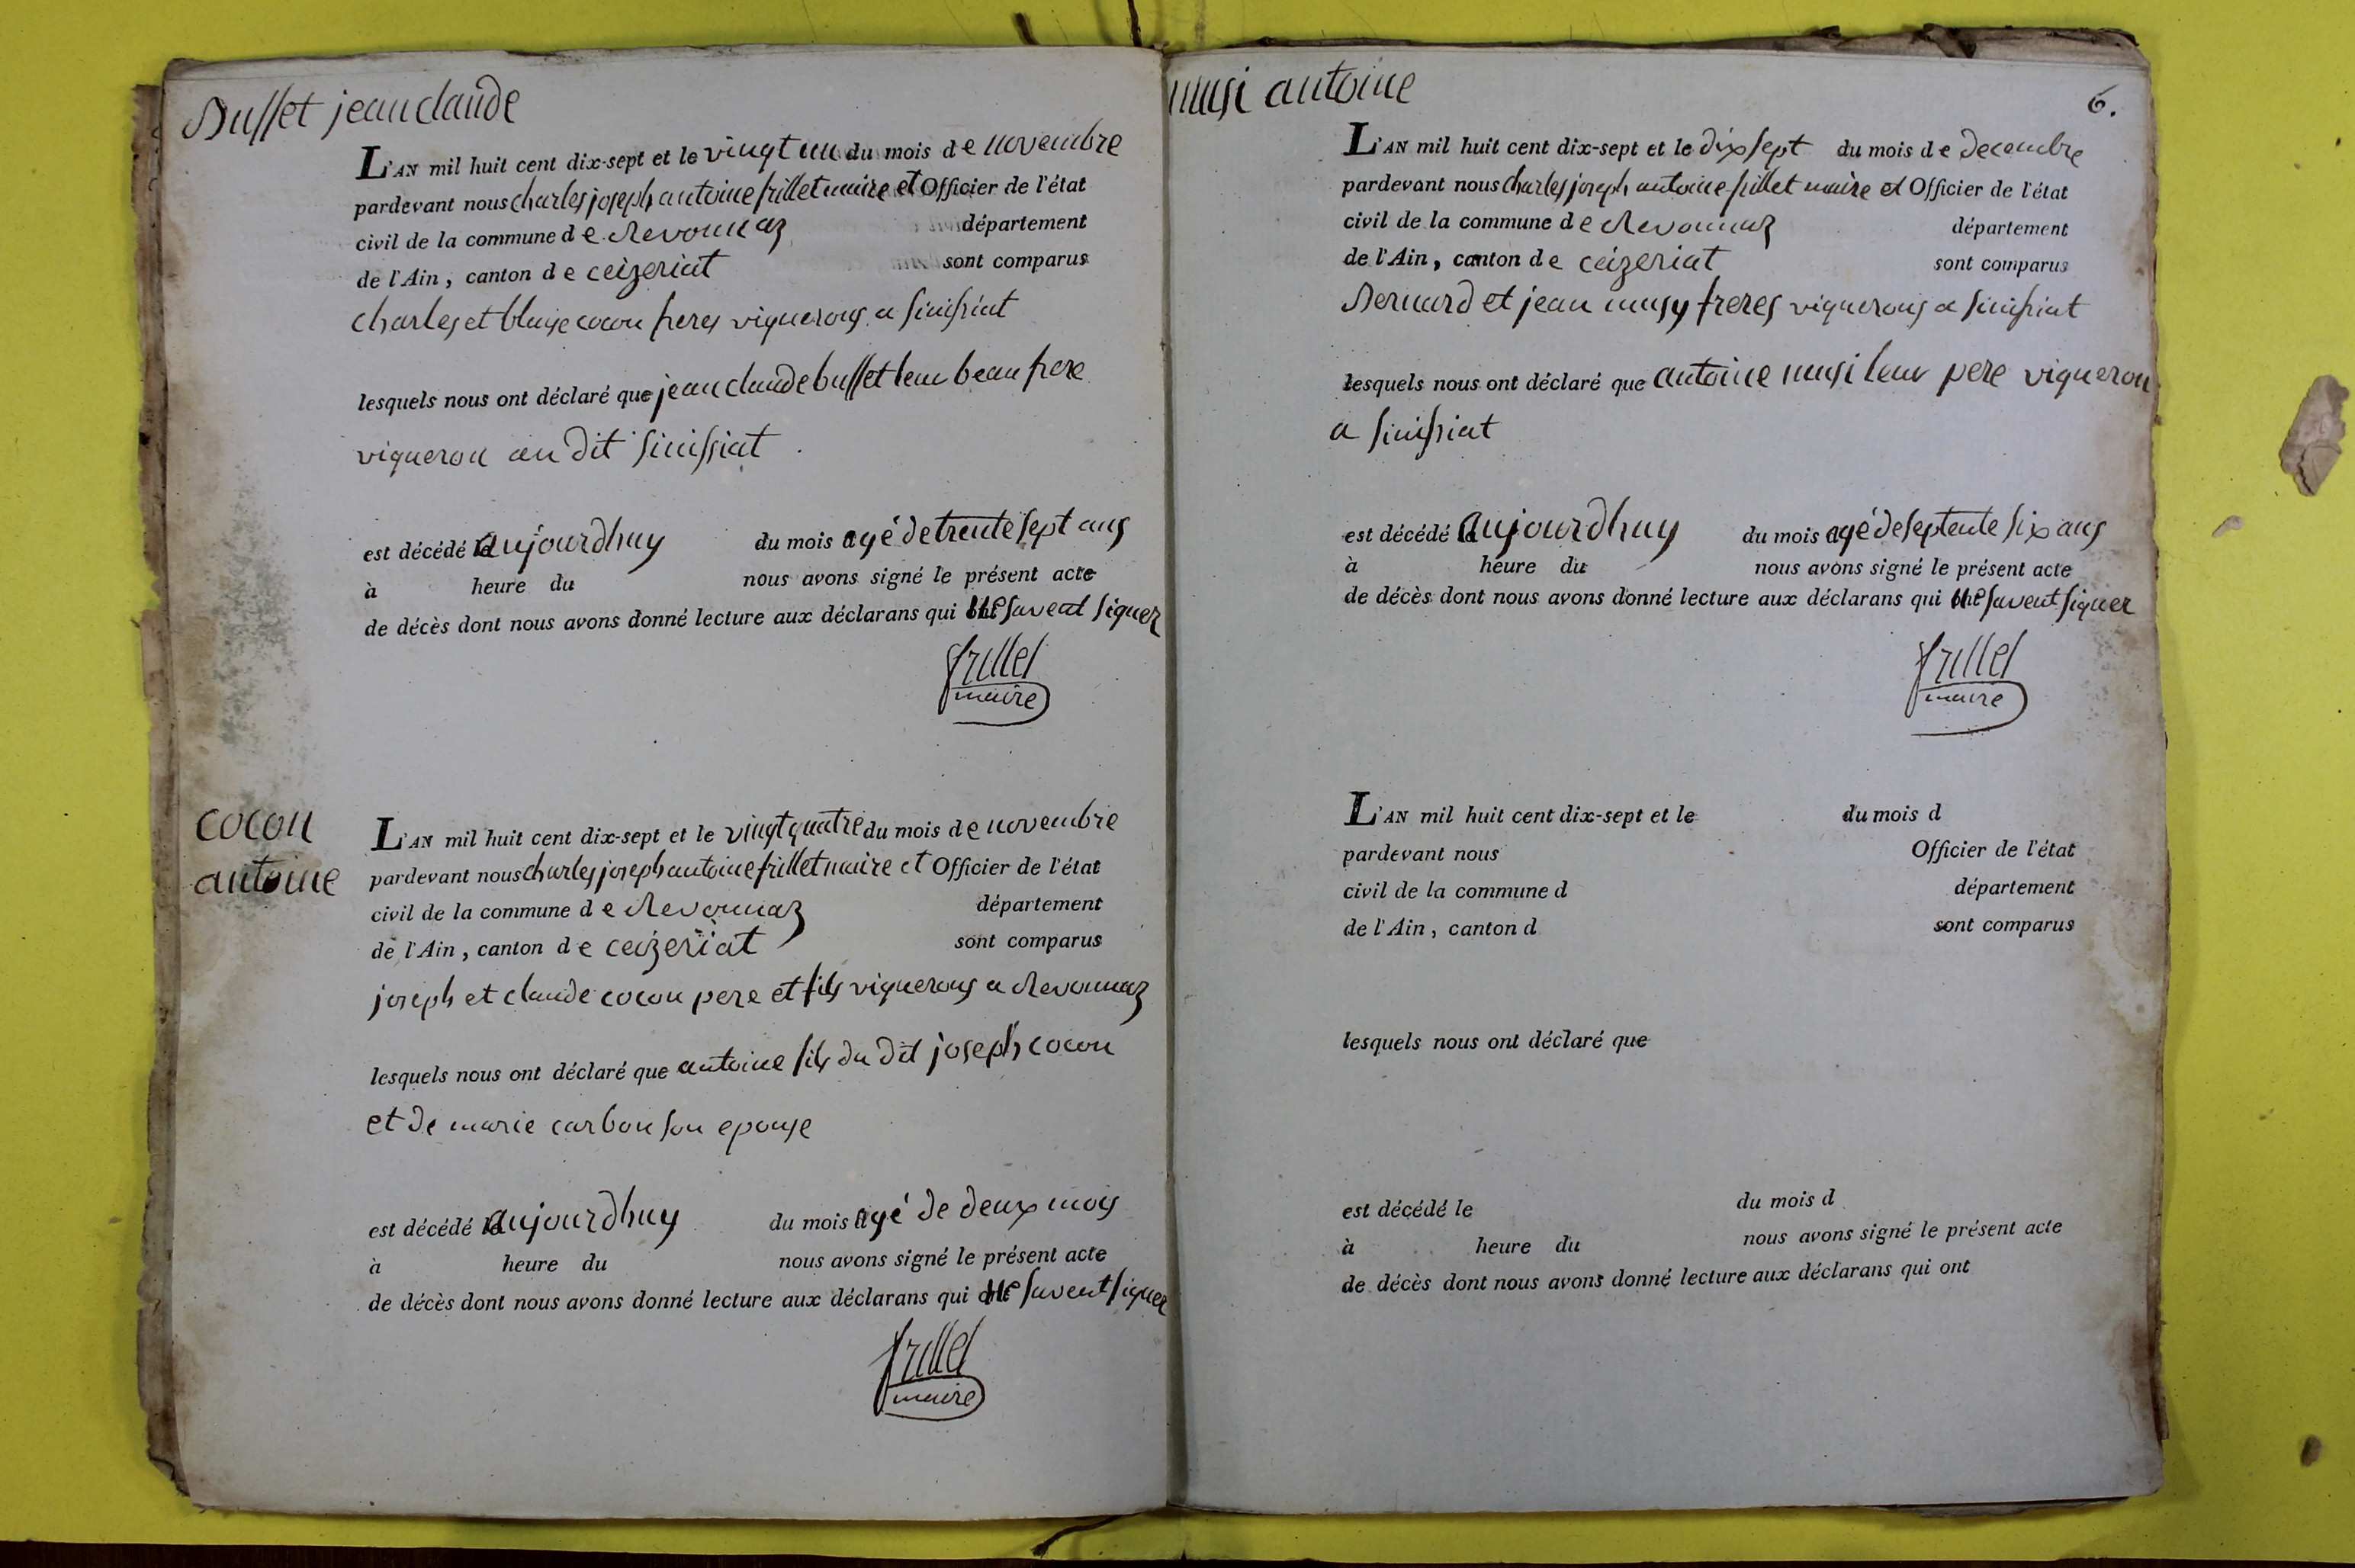 Buffet jean claude
L'AN mil huit cent dix-sept et le vingt un du mois de novembre
pardevant nous charles joseph antoine frillet maire et Officier de l'état
civil de la commune de Revonnaz département
de l'Ain, canton de ceizeriat sont comparus
charles et blaise cocon freres vignerons a sinissiat
lesquels nous ont déclaré que jean claude buffet leur beau frere
vigneron au dit sinissiat
est décédé aujourdhuy du mois agé de trente sept ans
à heure du nous avons signé le présent acte
de décès dont nous avons donné lecture aux déclarans qui ne savent signer
frillet
maire
cocon
antoine
L'AN mil huit cent dix-sept et le vingt quatre du mois de novembre
pardevant nous charles joseph antoine frillet maire et Officier de l'état
civil de la commune de Revonnaz département
de l'Ain, canton de ceizeriat sont comparus
joseph et claude cocon pere et fils vignerons a Revonnaz
lesquels nous ont déclaré que antoine fils du dit joseph cocon
et de marie carbon son epouse
est décédé aujourdhuy du mois agé de deux mois
à heure du nous avons signé le présent acte
de décès dont nous avons donné lecture aux déclarans qui ne savent signer
frillet
maire
musi antoine
6.
L'AN mil huit cent dix-sept et le dix sept du mois de decembre
pardevant nous charles joseph antoine frillet maire et Officier de l'état
civil de la commune de Revonnaz département
de l'Ain, canton de ceizeriat sont comparus
Bernard et jean musy freres vignerons a sinissiat
lesquels nous ont déclaré que antoine musi leur pere vigneron
a sinissiat
est décédé aujourdhuy du mois agé de septente six ans
à heure du nous avons signé le présent acte
de décès dont nous avons donné lecture aux déclarans qui ne savent signer
frillet
maire
L'AN mil huit cent dix-sept et le du mois d
pardevant nous Officier de l'état
civil de la commune d département
de l'Ain, canton d sont comparus
lesquels nous ont déclaré que
est décédé le du mois d
à heure du nous avons signé le présent acte
de décès dont nous avons donné lecture aux déclarans qui ont